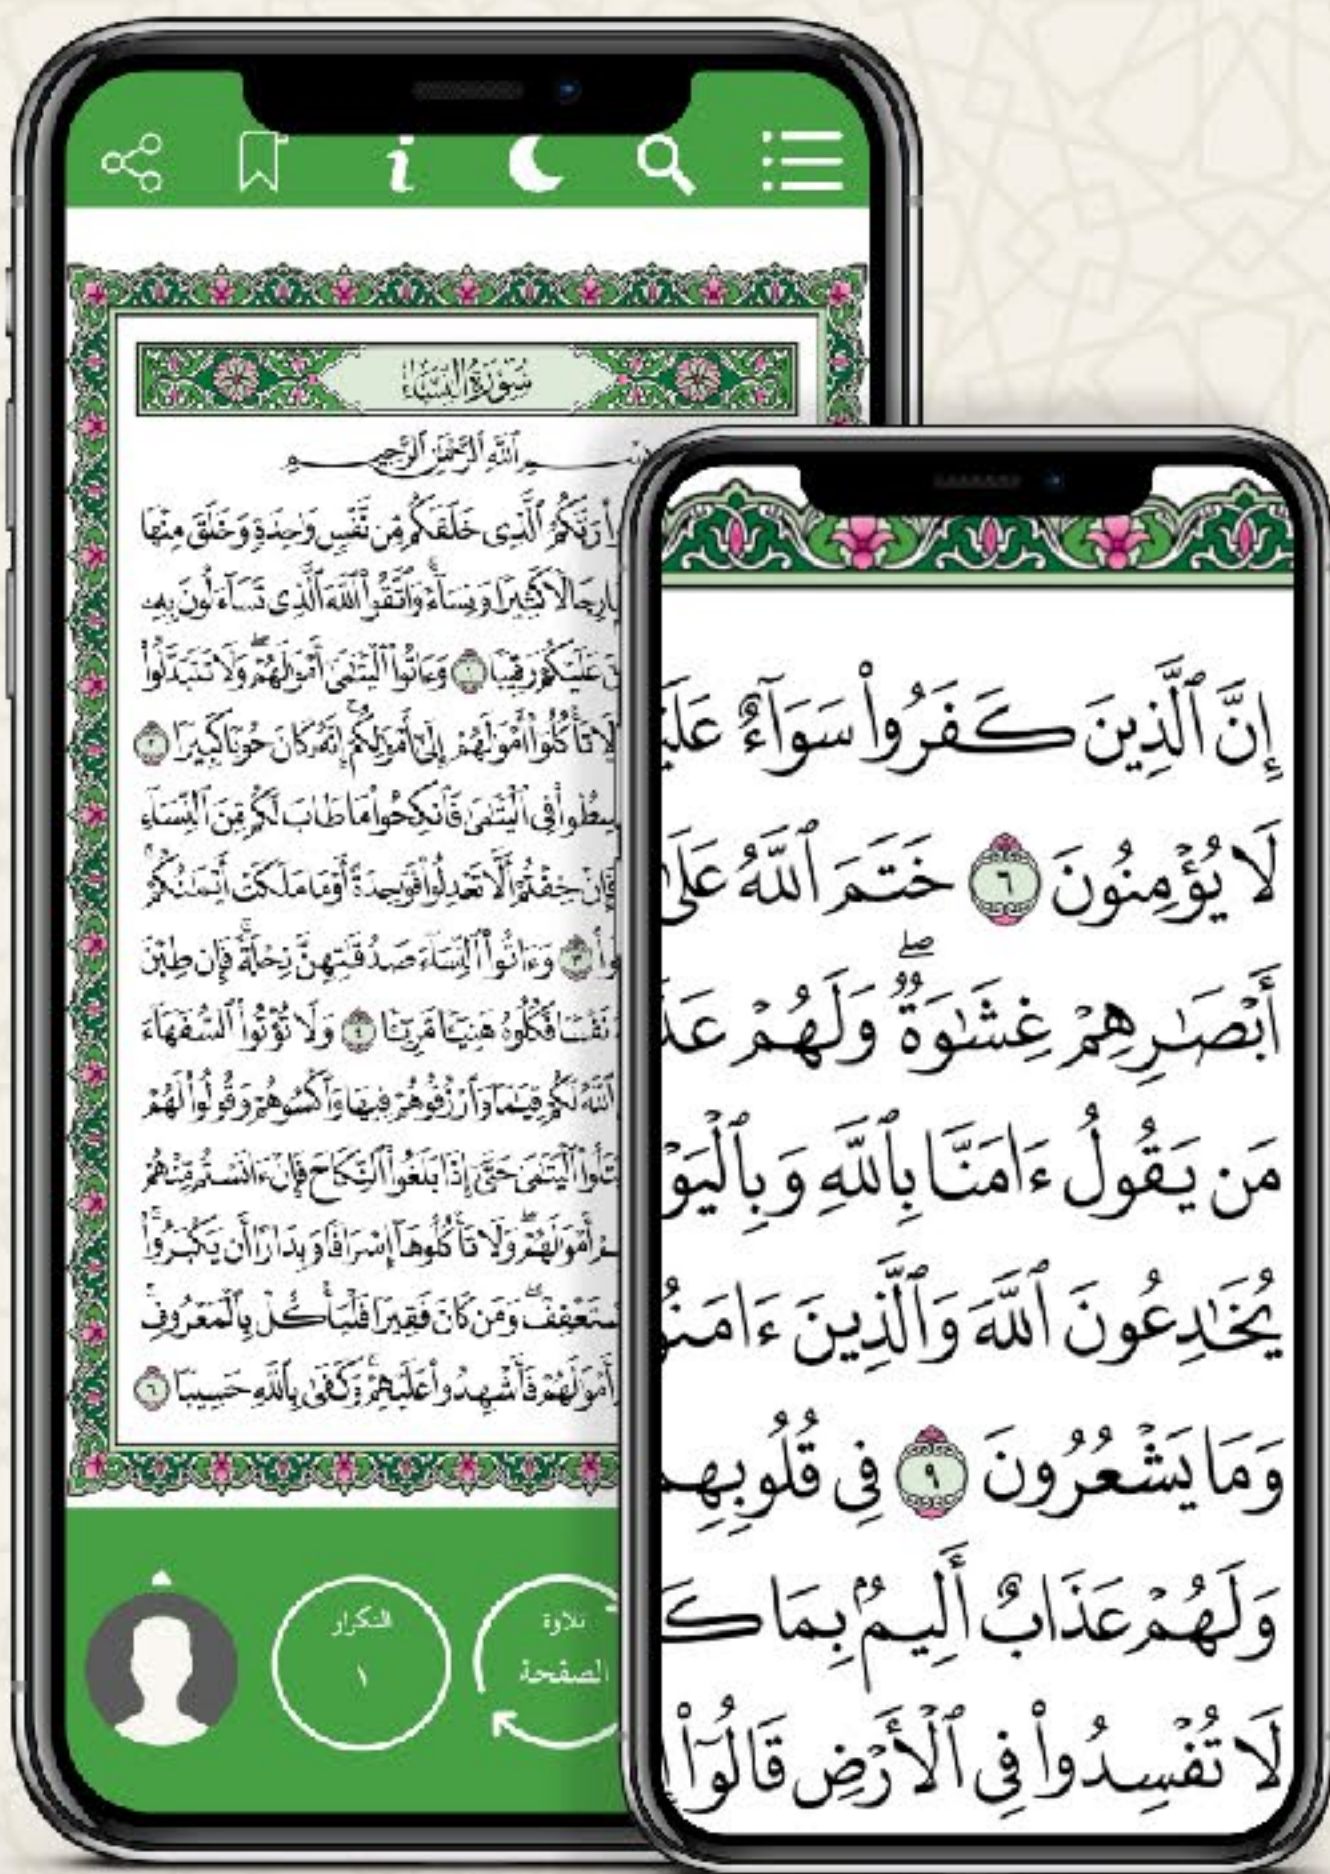 سُورَةُ النِّسَاءِ
ٱللَّهِ ٱلرَّحْمَٰنِ ٱلرَّحِيمِ
رَبَّكُمُ ٱلَّذِى خَلَقَكُم مِّن نَّفْسٍ وَٰحِدَةٍ وَخَلَقَ مِنْهَا
رِجَالًا كَثِيرًا وَنِسَآءً ۚ وَٱتَّقُوا۟ ٱللَّهَ ٱلَّذِى تَسَآءَلُونَ بِهِۦ
عَلَيْكُمْ رَقِيبًا ١ وَءَاتُوا۟ ٱلْيَتَٰمَىٰٓ أَمْوَٰلَهُمْ ۖ وَلَا تَتَبَدَّلُوا۟
تَأْكُلُوٓا۟ أَمْوَٰلَهُمْ إِلَىٰٓ أَمْوَٰلِكُمْ ۚ إِنَّهُۥ كَانَ حُوبًا كَبِيرًا ٢
فِى ٱلْيَتَٰمَىٰ فَٱنكِحُوا۟ مَا طَابَ لَكُم مِّنَ ٱلنِّسَآءِ
فَإِنْ خِفْتُمْ أَلَّا تَعْدِلُوا۟ فَوَٰحِدَةً أَوْ مَا مَلَكَتْ أَيْمَٰنُكُمْ ۚ
٣ وَءَاتُوا۟ ٱلنِّسَآءَ صَدُقَٰتِهِنَّ نِحْلَةً ۚ فَإِن طِبْنَ
نَفْسًا فَكُلُوهُ هَنِيٓـًٔا مَّرِيٓـًٔا ٤ وَلَا تُؤْتُوا۟ ٱلسُّفَهَآءَ
ٱللَّهُ لَكُمْ قِيَٰمًا وَٱرْزُقُوهُمْ فِيهَا وَٱكْسُوهُمْ وَقُولُوا۟ لَهُمْ
ٱلْيَتَٰمَىٰ حَتَّىٰٓ إِذَا بَلَغُوا۟ ٱلنِّكَاحَ فَإِنْ ءَانَسْتُم مِّنْهُمْ
أَمْوَٰلَهُمْ ۖ وَلَا تَأْكُلُوهَآ إِسْرَافًا وَبِدَارًا أَن يَكْبَرُوا۟ ۚ
وَمَن كَانَ فَقِيرًا فَلْيَأْكُلْ بِٱلْمَعْرُوفِ ۚ
أَمْوَٰلَهُمْ فَأَشْهِدُوا۟ عَلَيْهِمْ ۚ وَكَفَىٰ بِٱللَّهِ حَسِيبًا ٦
تلاوة
الصفحة
التكرار
١
إِنَّ ٱلَّذِينَ كَفَرُوا۟ سَوَآءٌ
لَا يُؤْمِنُونَ ٦ خَتَمَ ٱللَّهُ عَلَىٰ
أَبْصَٰرِهِمْ غِشَٰوَةٌ ۖ وَلَهُمْ
مَن يَقُولُ ءَامَنَّا بِٱللَّهِ
يُخَٰدِعُونَ ٱللَّهَ وَٱلَّذِينَ
وَمَا يَشْعُرُونَ ٩ فِى قُلُوبِهِم
وَلَهُمْ عَذَابٌ أَلِيمٌۢ بِمَا
لَا تُفْسِدُوا۟ فِى ٱلْأَرْضِ قَالُوٓا۟